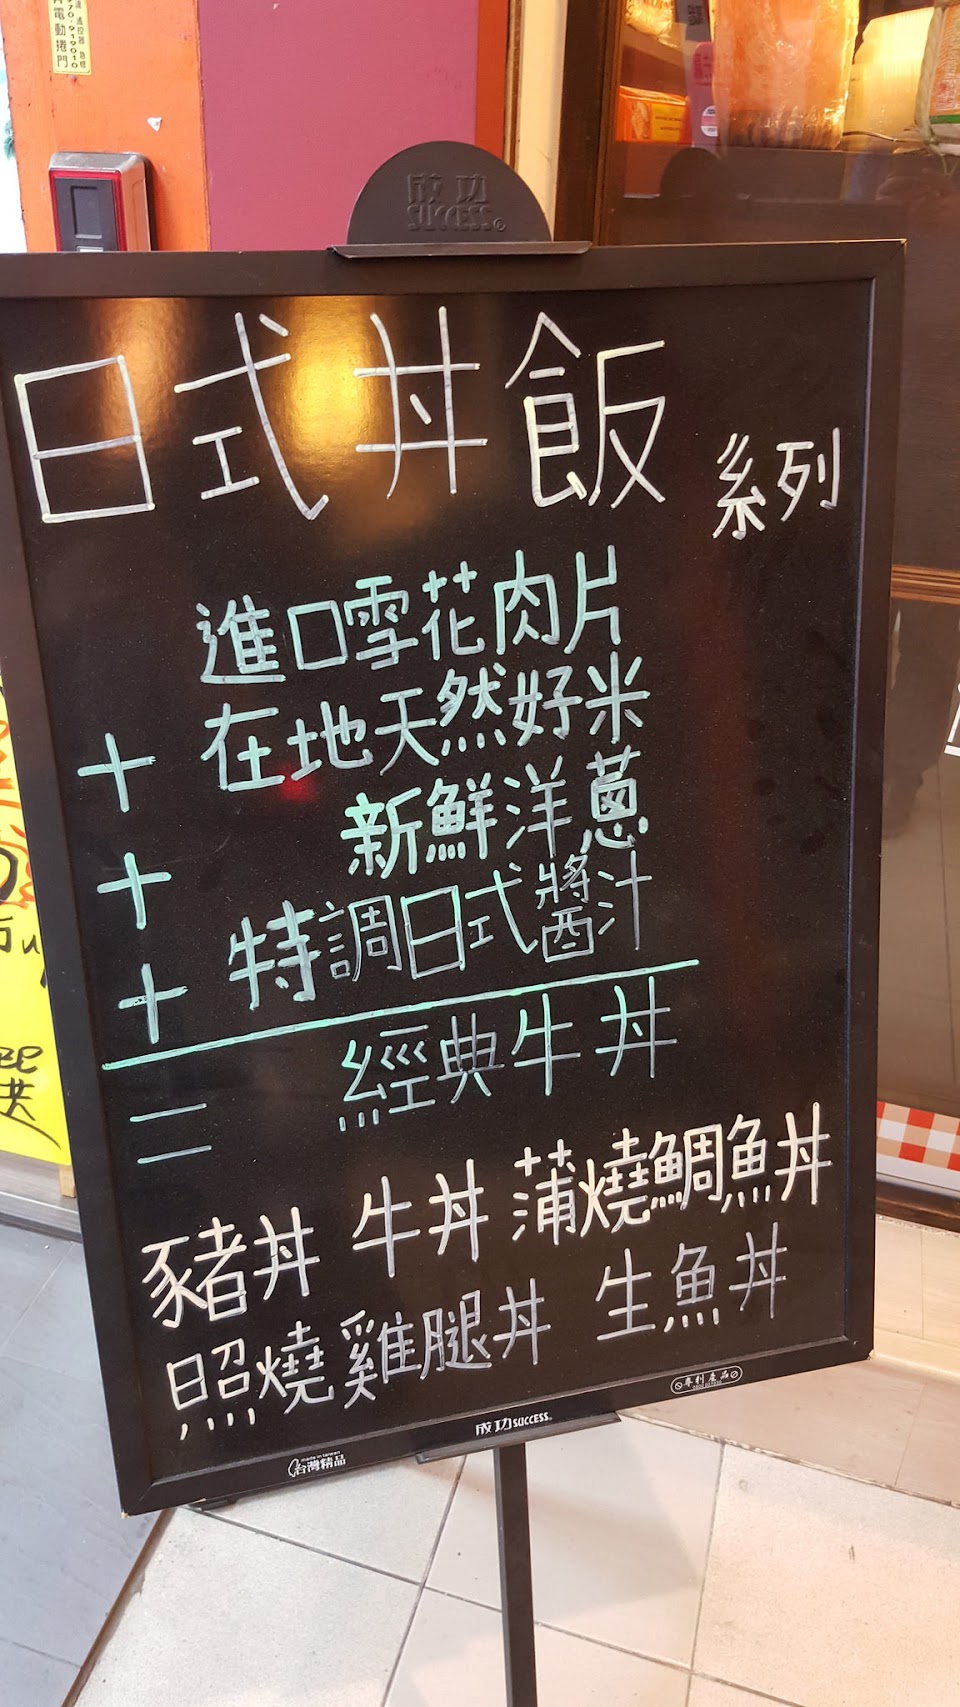 電動捲門
成功
SUCCESS
日式丼飯 系列
進口雪花肉片
+ 在地天然好米
+ 新鮮洋蔥
+ 特調日式醬汁
= 經典牛丼
豬丼 牛丼 蒲燒鯛魚丼
照燒雞腿丼 生魚丼
專利產品
成功 SUCCESS
made in taiwan
台灣精品